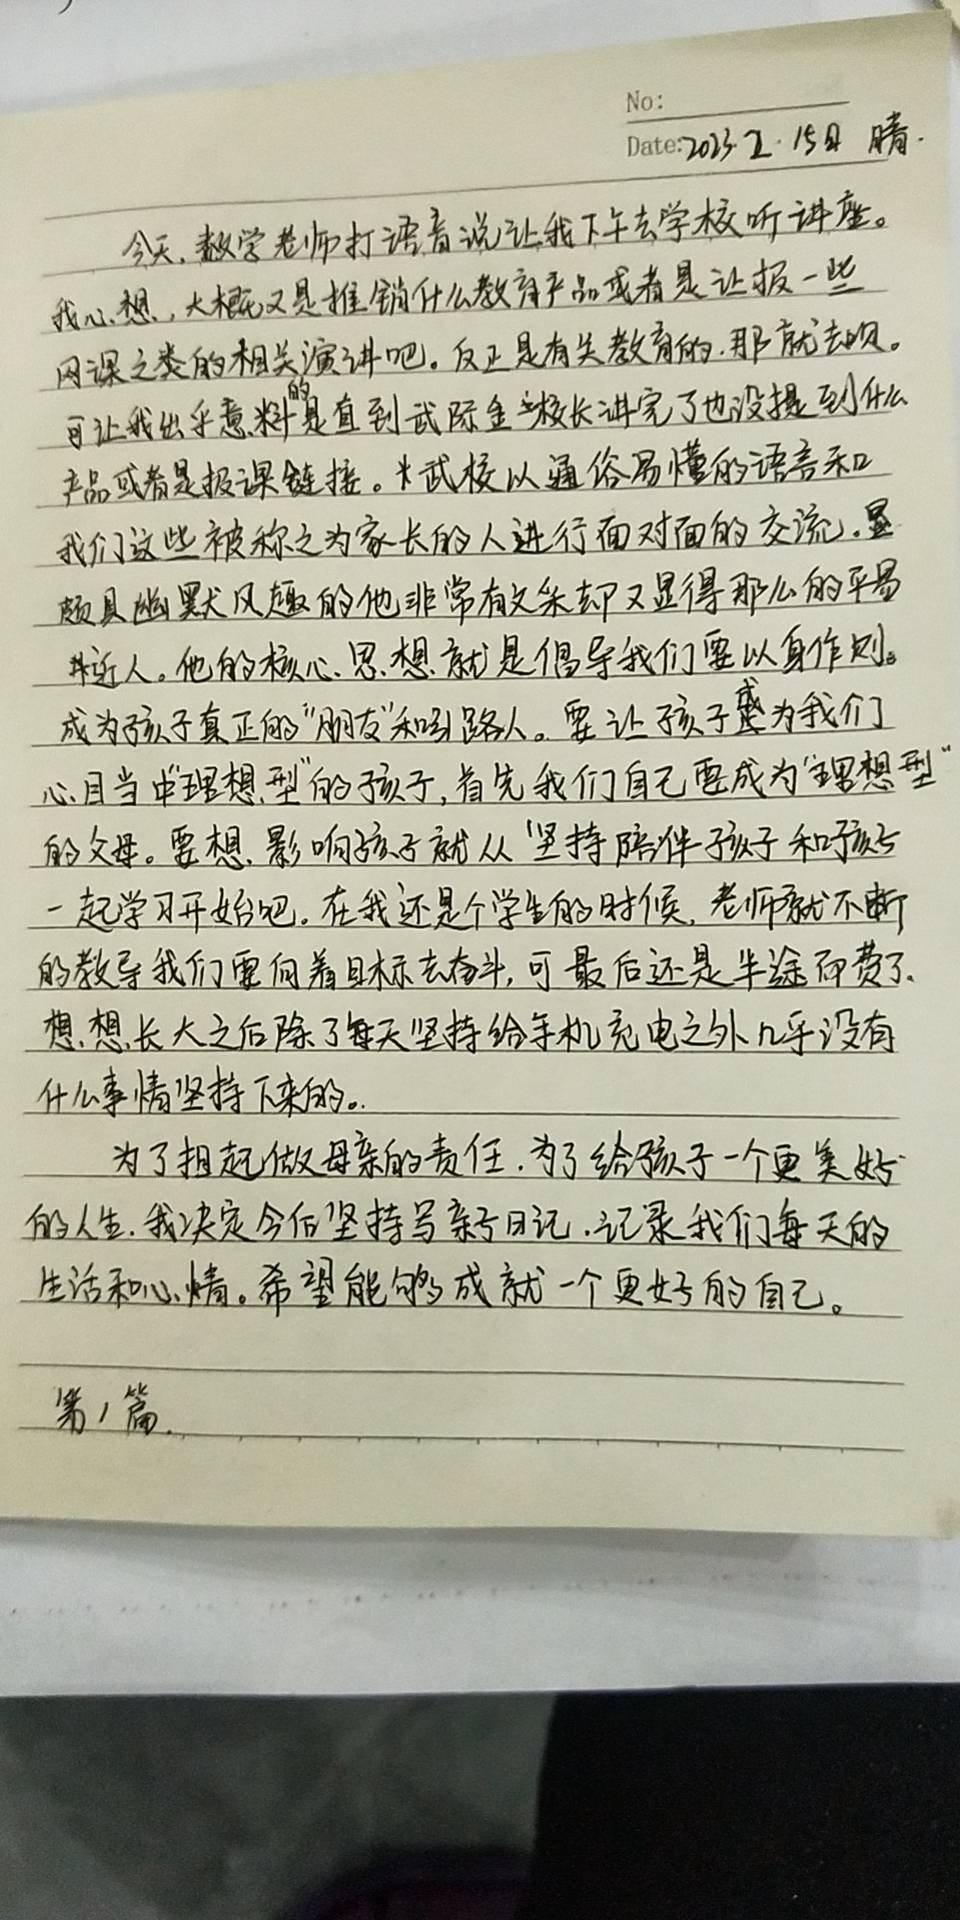 No:
Date:2023.2.15日 晴.
今天,数学老师打语音说让我下午去学校听讲座。
我心想,大概又是推销什么教育产品或者是让报一些
网课之类的相关演讲吧。反正是有关教育的.那就去呗。
可让我出乎意料的是直到武际金校长讲完了也没提到什么
产品或者是报课链接。武校以通俗易懂的语言和
我们这些被称之为家长的人进行面对面的交流.
颇具幽默风趣的他非常有文采却又显得那么的平易
近人。他的核心思想就是倡导我们要以身作则。
成为孩子真正的“朋友”和引路人。要让孩子成为我们
心目当中“理想型”的孩子,首先我们自己要成为“理想型”
的父母。要想影响孩子就从坚持陪伴孩子和孩子
一起学习开始吧.在我还是个学生的时候,老师就不断
的教导我们要向着目标去奋斗,可最后还是半途而费了.
想想长大之后除了每天坚持给手机充电之外几乎没有
什么事情坚持下来的。
为了担起做母亲的责任.为了给孩子一个更美好
的人生.我决定今后坚持写亲子日记.记录我们每天的
生活和心情。希望能够成就一个更好的自己。
第1篇.